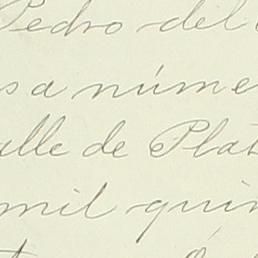 Pedro del
sa núme
alle de Plat
mil quin